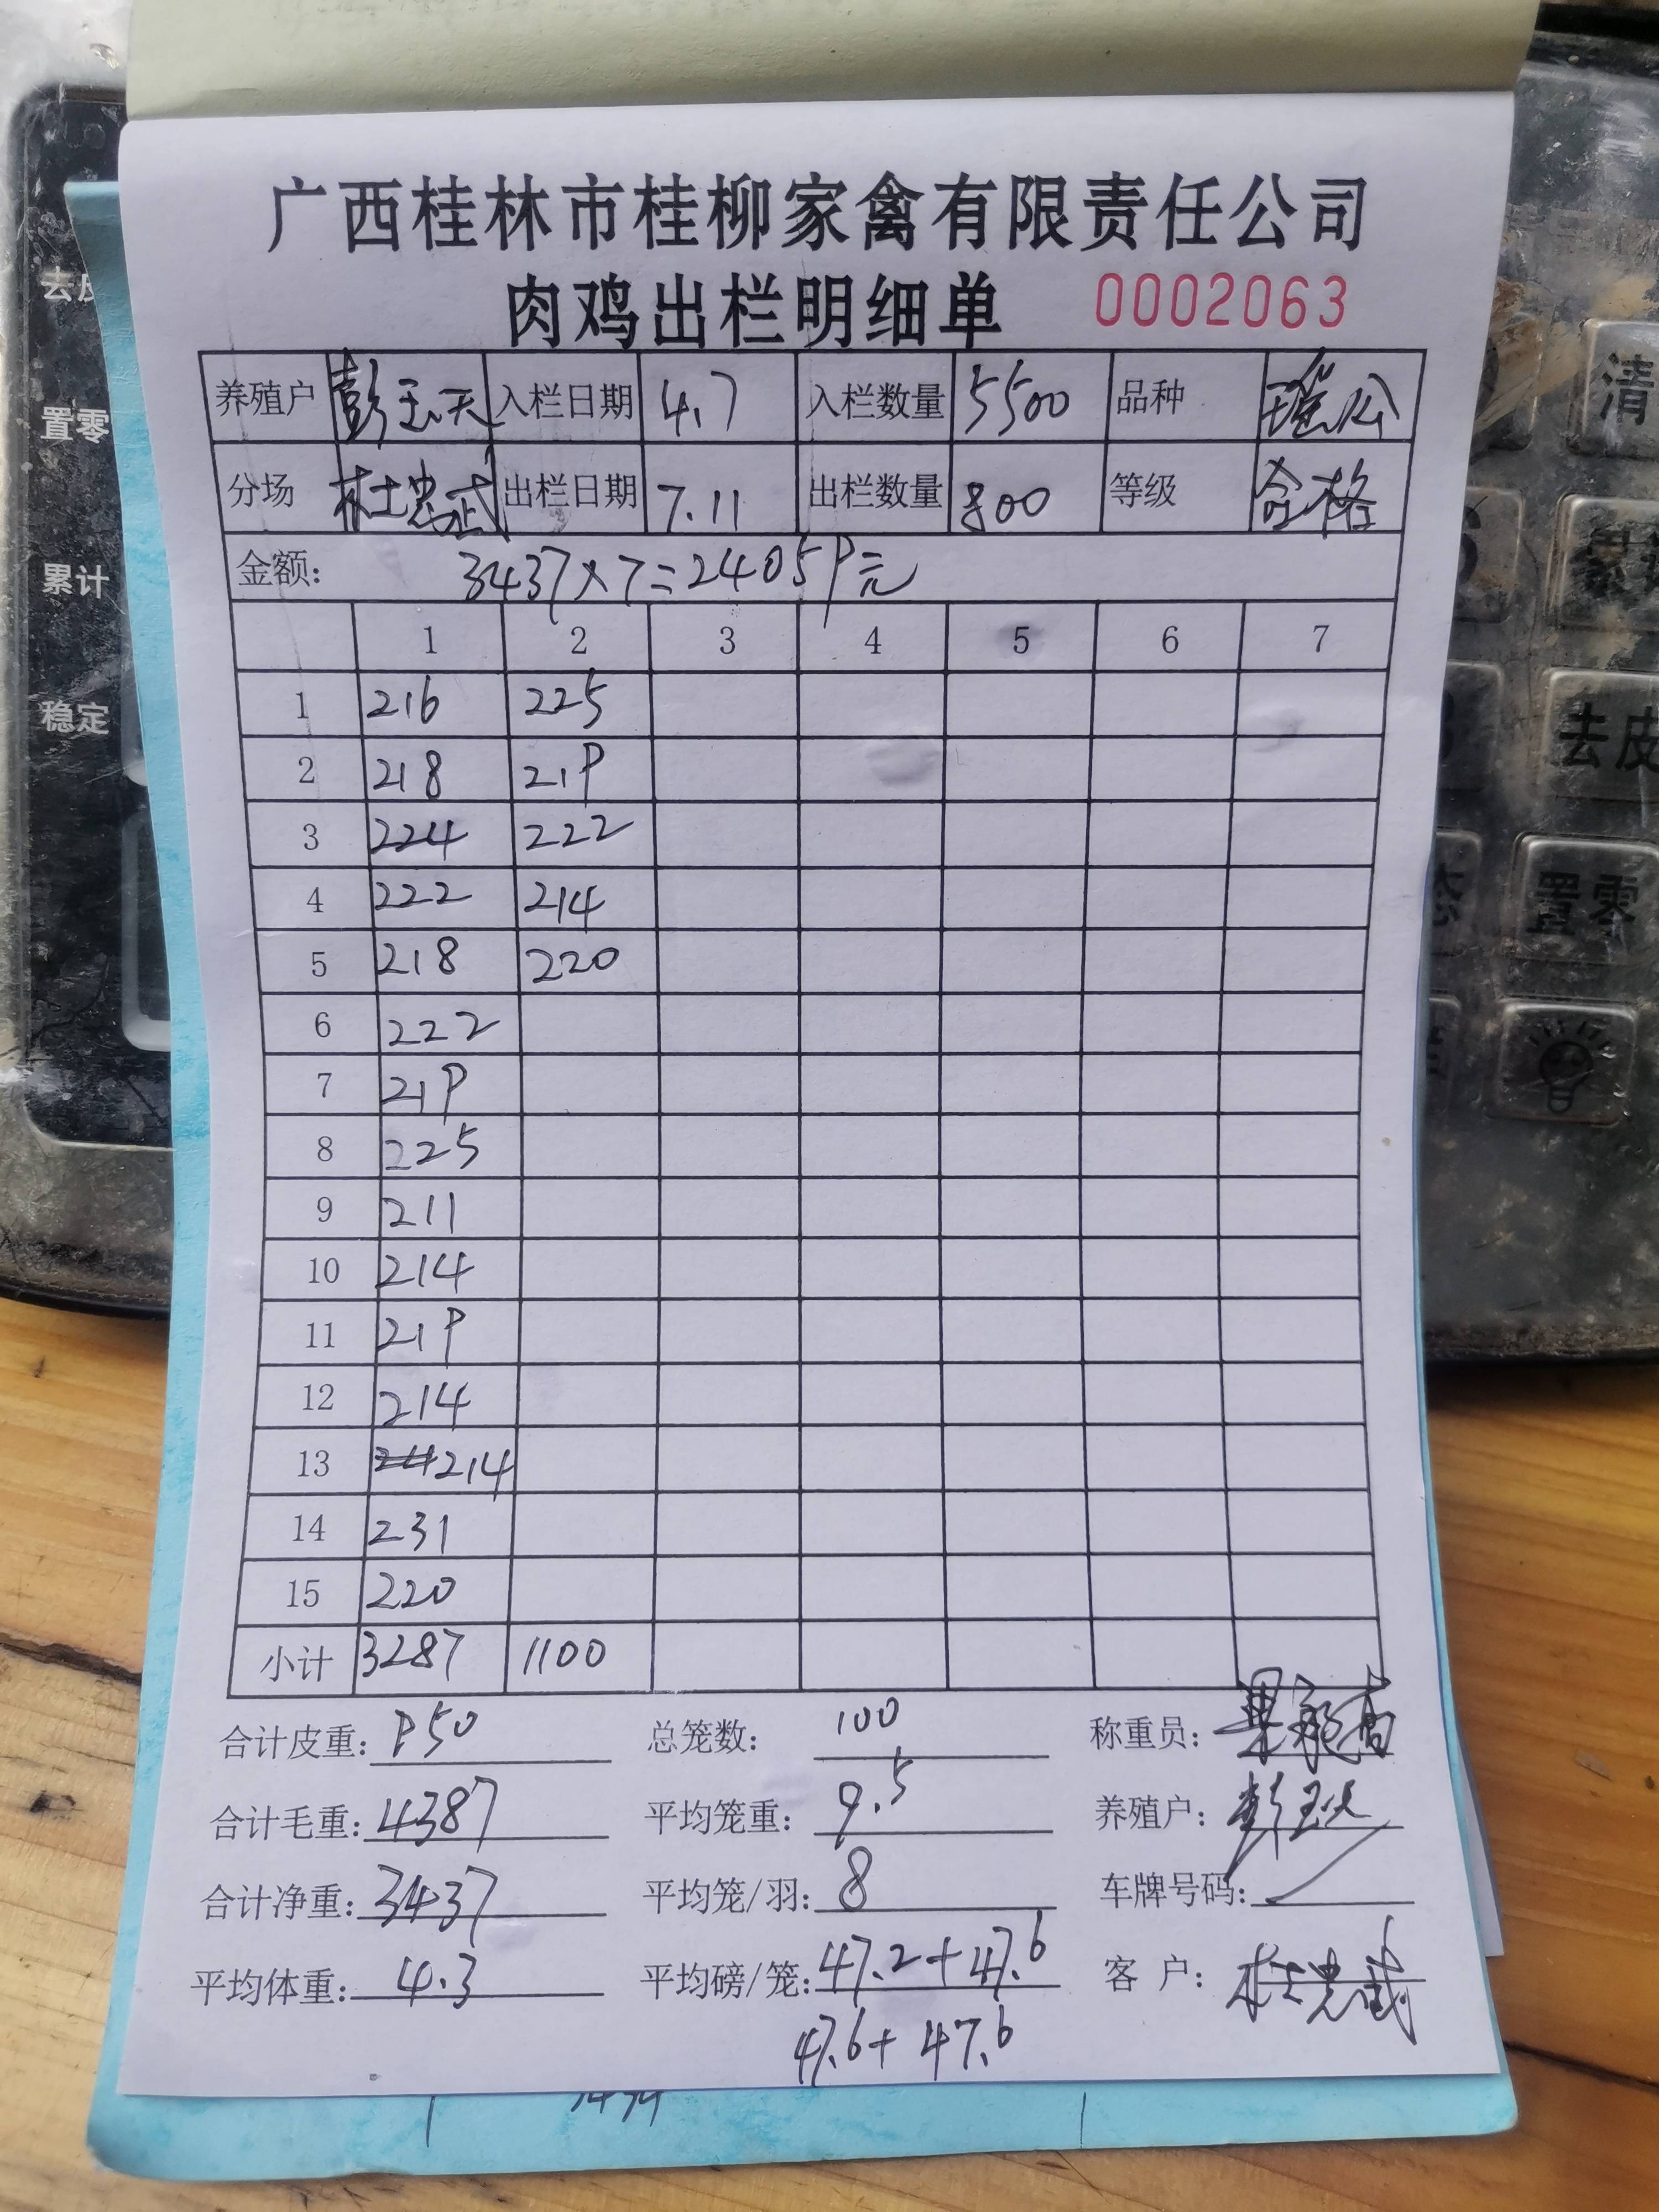 广西桂林市桂柳家禽有限责任公司
肉鸡出栏明细单 0002063
养殖户 彭玉天 入栏日期 4.7 入栏数量 5500 品种 瑶公
分场 杜忠武 出栏日期 7.11 出栏数量 800 等级 合格
金额: 3437×7=24059元
1 2 3 4 5 6 7
1 216 225
2 218 219
3 224 222
4 222 214
5 218 220
6 222
7 219
8 225
9 211
10 214
11 219
12 214
13 214
14 231
15 220
小计 3287 1100
合计皮重: 950 总笼数: 100 称重员:
合计毛重: 4387 平均笼重: 9.5 养殖户:
合计净重: 3437 平均笼/羽: 8 车牌号码:
平均体重: 4.3 平均磅/笼: 47.2+47.6 客 户: 杜忠武
47.6+47.6
去皮
置零
累计
稳定
清
去皮
置零